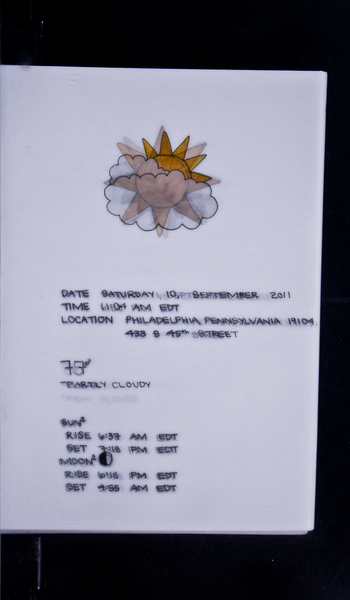 DATE SATURDAY, 10, SEPTEMBER 2011
TIME 11:04 AM EDT
LOCATION PHILADELPHIA, PENNSYLVANIA 19104
433 S 45TH STREET
PARTLY CLOUDY
SUN
RISE 6:37 AM EDT
SET 7:18 PM EDT
MOON
RISE PM EDT
SET AM EDT